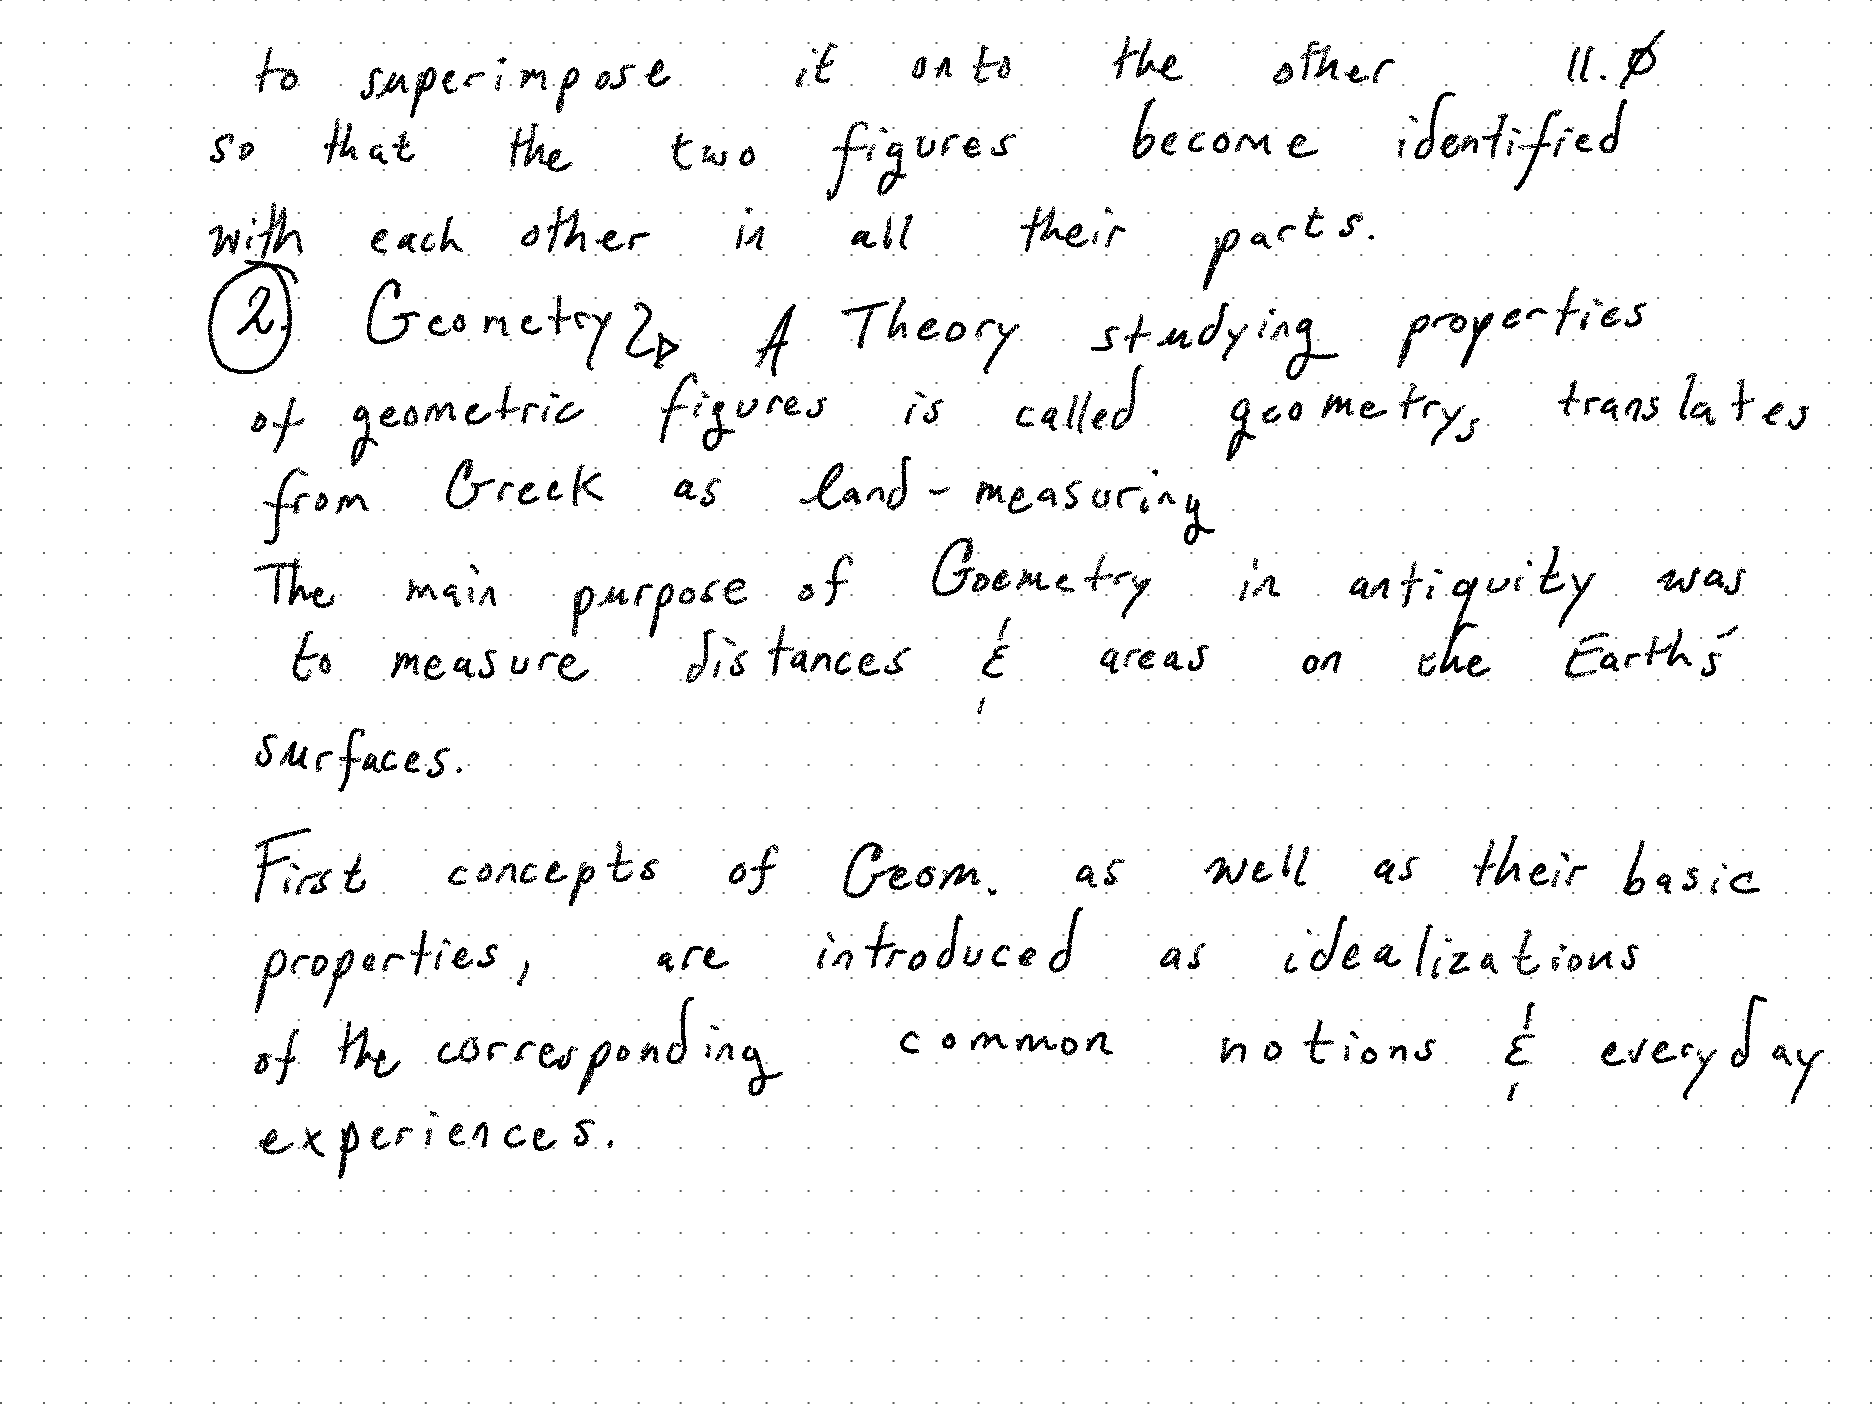 to superimpose it onto the other 11.Ø
so that the two figures become identified
with each other in all their parts.
2. Geometry A Theory studying properties
of geometric figures is called geometry, translates
from Greek as land-measuring
The main purpose of Goemetry in antiquity was
to measure distances & areas on the Earth's
surfaces.
First concepts of Geom. as well as their basic
properties, are introduced as idealizations
of the corresponding common notions & everyday
experiences.